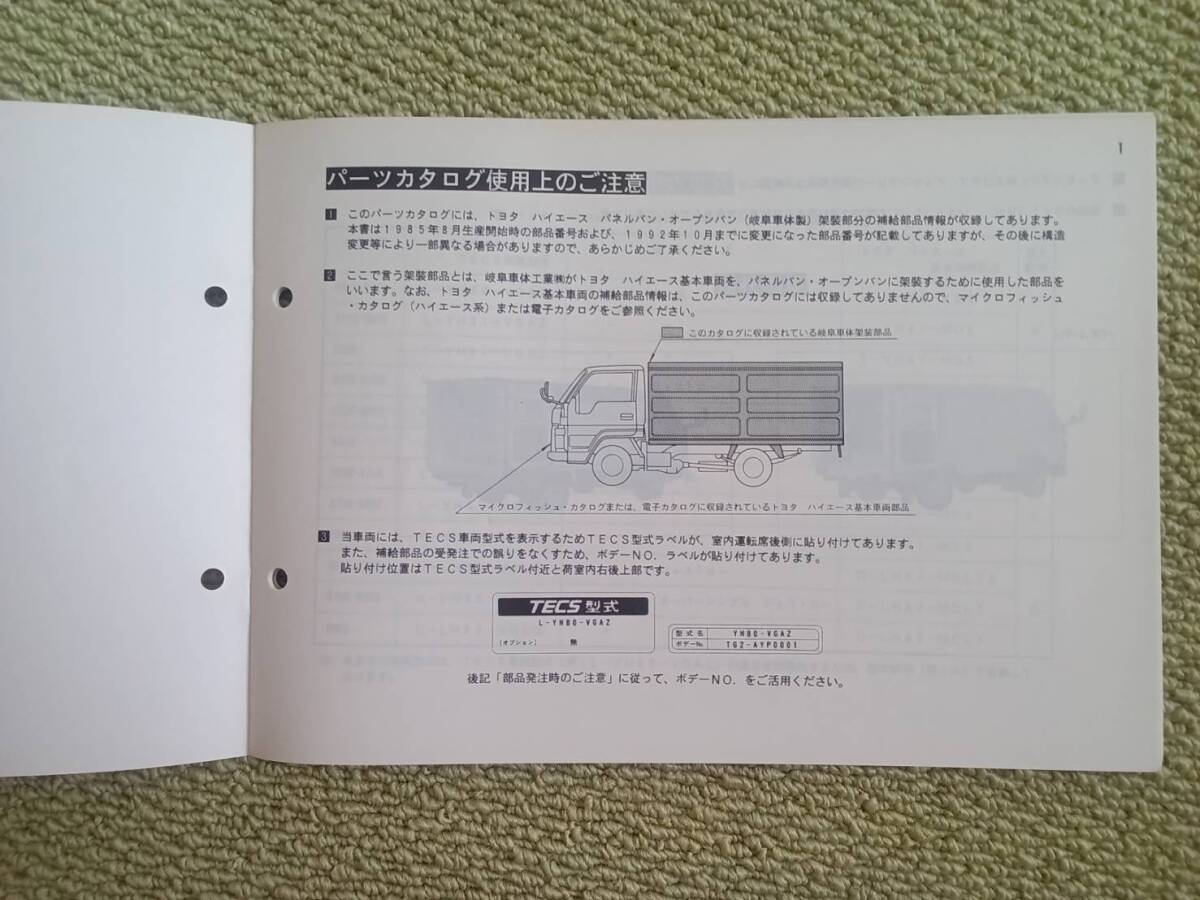 1
パーツカタログ使用上のご注意
1 このパーツカタログには、トヨタ ハイエース パネルバン・オープンバン（岐阜車体製）架装部分の補給部品情報が収録してあります。
本書は1985年8月生産開始時の部品番号および、1992年10月までに変更になった部品番号が記載してありますが、その後に構造
変更等により一部異なる場合がありますので、あらかじめご了承ください。
2 ここで言う架装部品とは、岐阜車体工業㈱がトヨタ ハイエース基本車両を、パネルバン・オープンバンに架装するために使用した部品を
いいます。なお、トヨタ ハイエース基本車両の補給部品情報は、このパーツカタログには収録してありませんので、マイクロフィッシュ
・カタログ（ハイエース系）または電子カタログをご参照ください。
このカタログに収録されている岐阜車体架装部品
マイクロフィッシュ・カタログまたは、電子カタログに収録されているトヨタ ハイエース基本車両部品
3 当車両には、TECS車両型式を表示するためTECS型式ラベルが、室内運転席後側に貼り付けてあります。
また、補給部品の受発注での誤りをなくすため、ボデーNO．ラベルが貼り付けてあります。
貼り付け位置はTECS型式ラベル付近と荷室内右後上部です。
TECS 型式
L-YH80-VGAZ
［オプション］ 無
型式名 YH80-VGAZ
ボデーNo. TG2-AYP0001
後記「部品発注時のご注意」に従って、ボデーNO．をご活用ください。